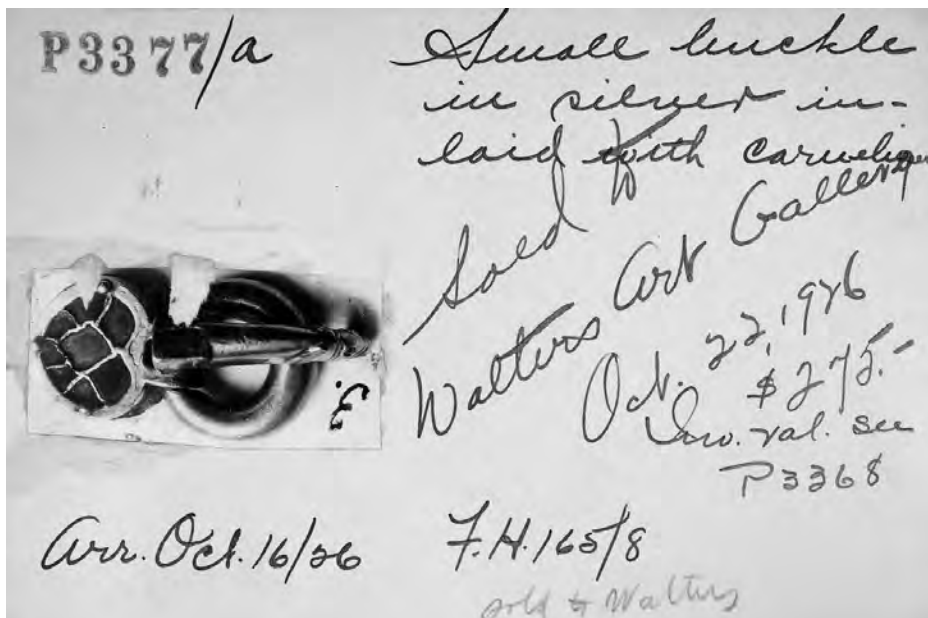 P3377/a
Small buckle
in silver in-
laid with
Sold
Walters Art Gallery
Oct. 22, 1926
$275.-
Inv. val. see
P3368
E.
Arr. Oct. 16/26
F.H. 165/8
sold to Walters